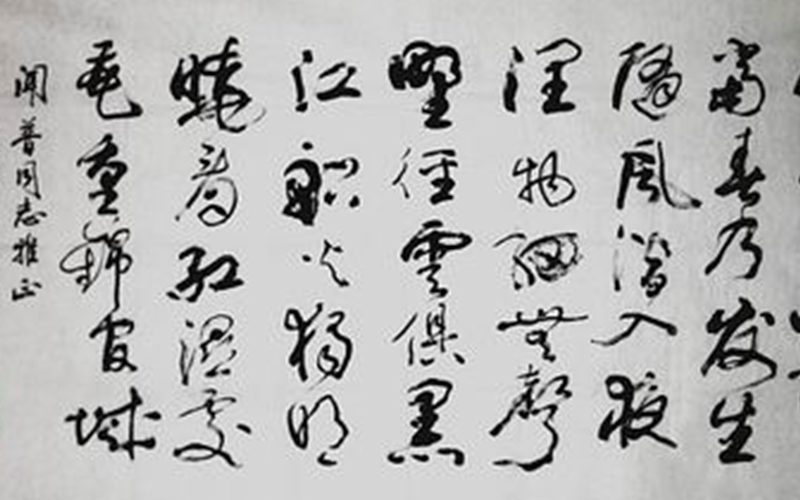 當春乃发生
随風潛入夜
潤物細無聲
野徑雲俱黑
江船火獨明
曉看紅濕處
花重錦官城
闻普同志雅正